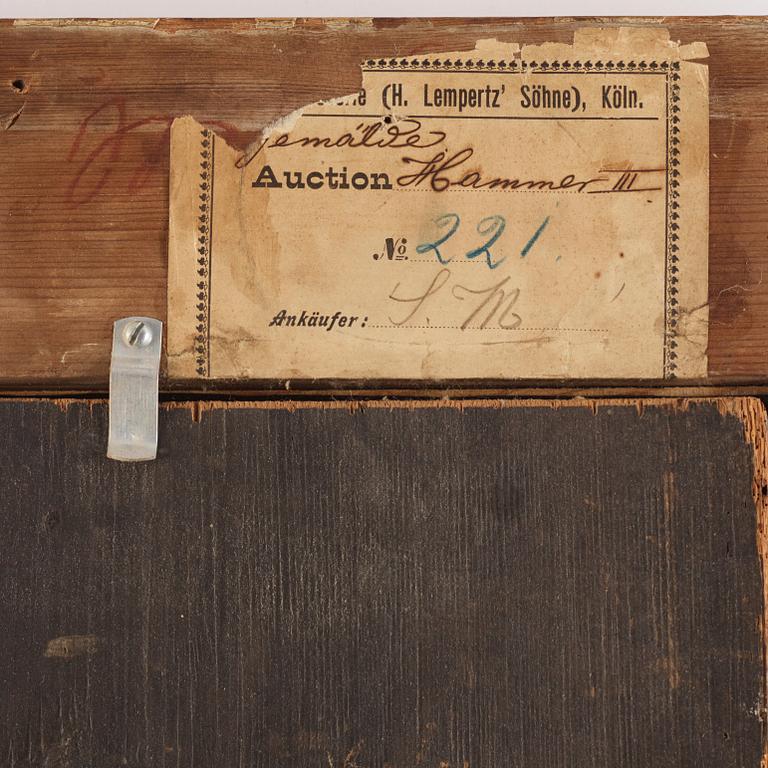 (H. Lempertz' Söhne), Köln.
Gemälde
Auction Hammer III
No. 221.
Ankäufer: S. M